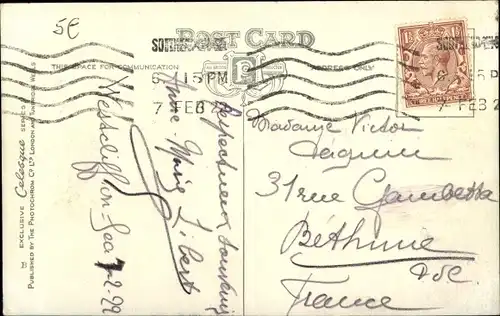 5€
POST CARD
THIS SPACE FOR COMMUNICATION
ADDRESS ONLY
6 15 PM
7 FEB 2
7 FEB 2
EXCLUSIVE Celesque SERIES
PUBLISHED BY THE PHOTOCHROM Cº Lᵀᴰ LONDON AND TUNBRIDGE WELLS
Westcliff-on-Sea 7-2-22
Respectueux
Anne-Marie Libert
Madame Victor
31 rue Gambetta
Béthune
P.d.C.
France